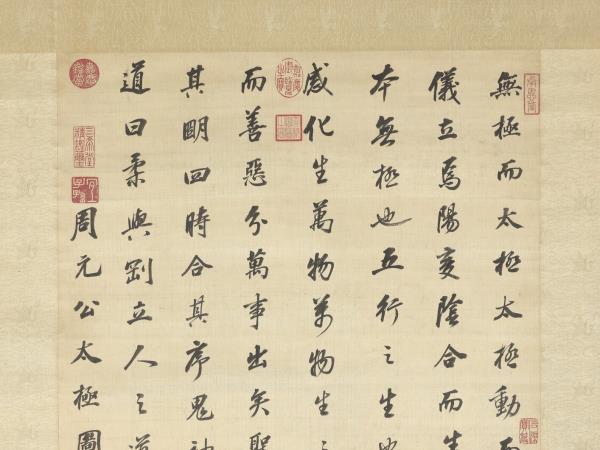 無極而太極太極動而
儀立焉陽變陰合而生
本無極也五行之生也
感化生萬物萬物生之
而善惡分萬事出矣聖
其明四時合其序鬼神
道曰柔與剛立人之道
周元公太極圖